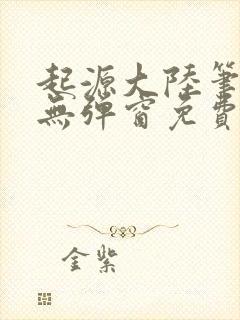 起源大陸筆
無彈窗免費
金紫